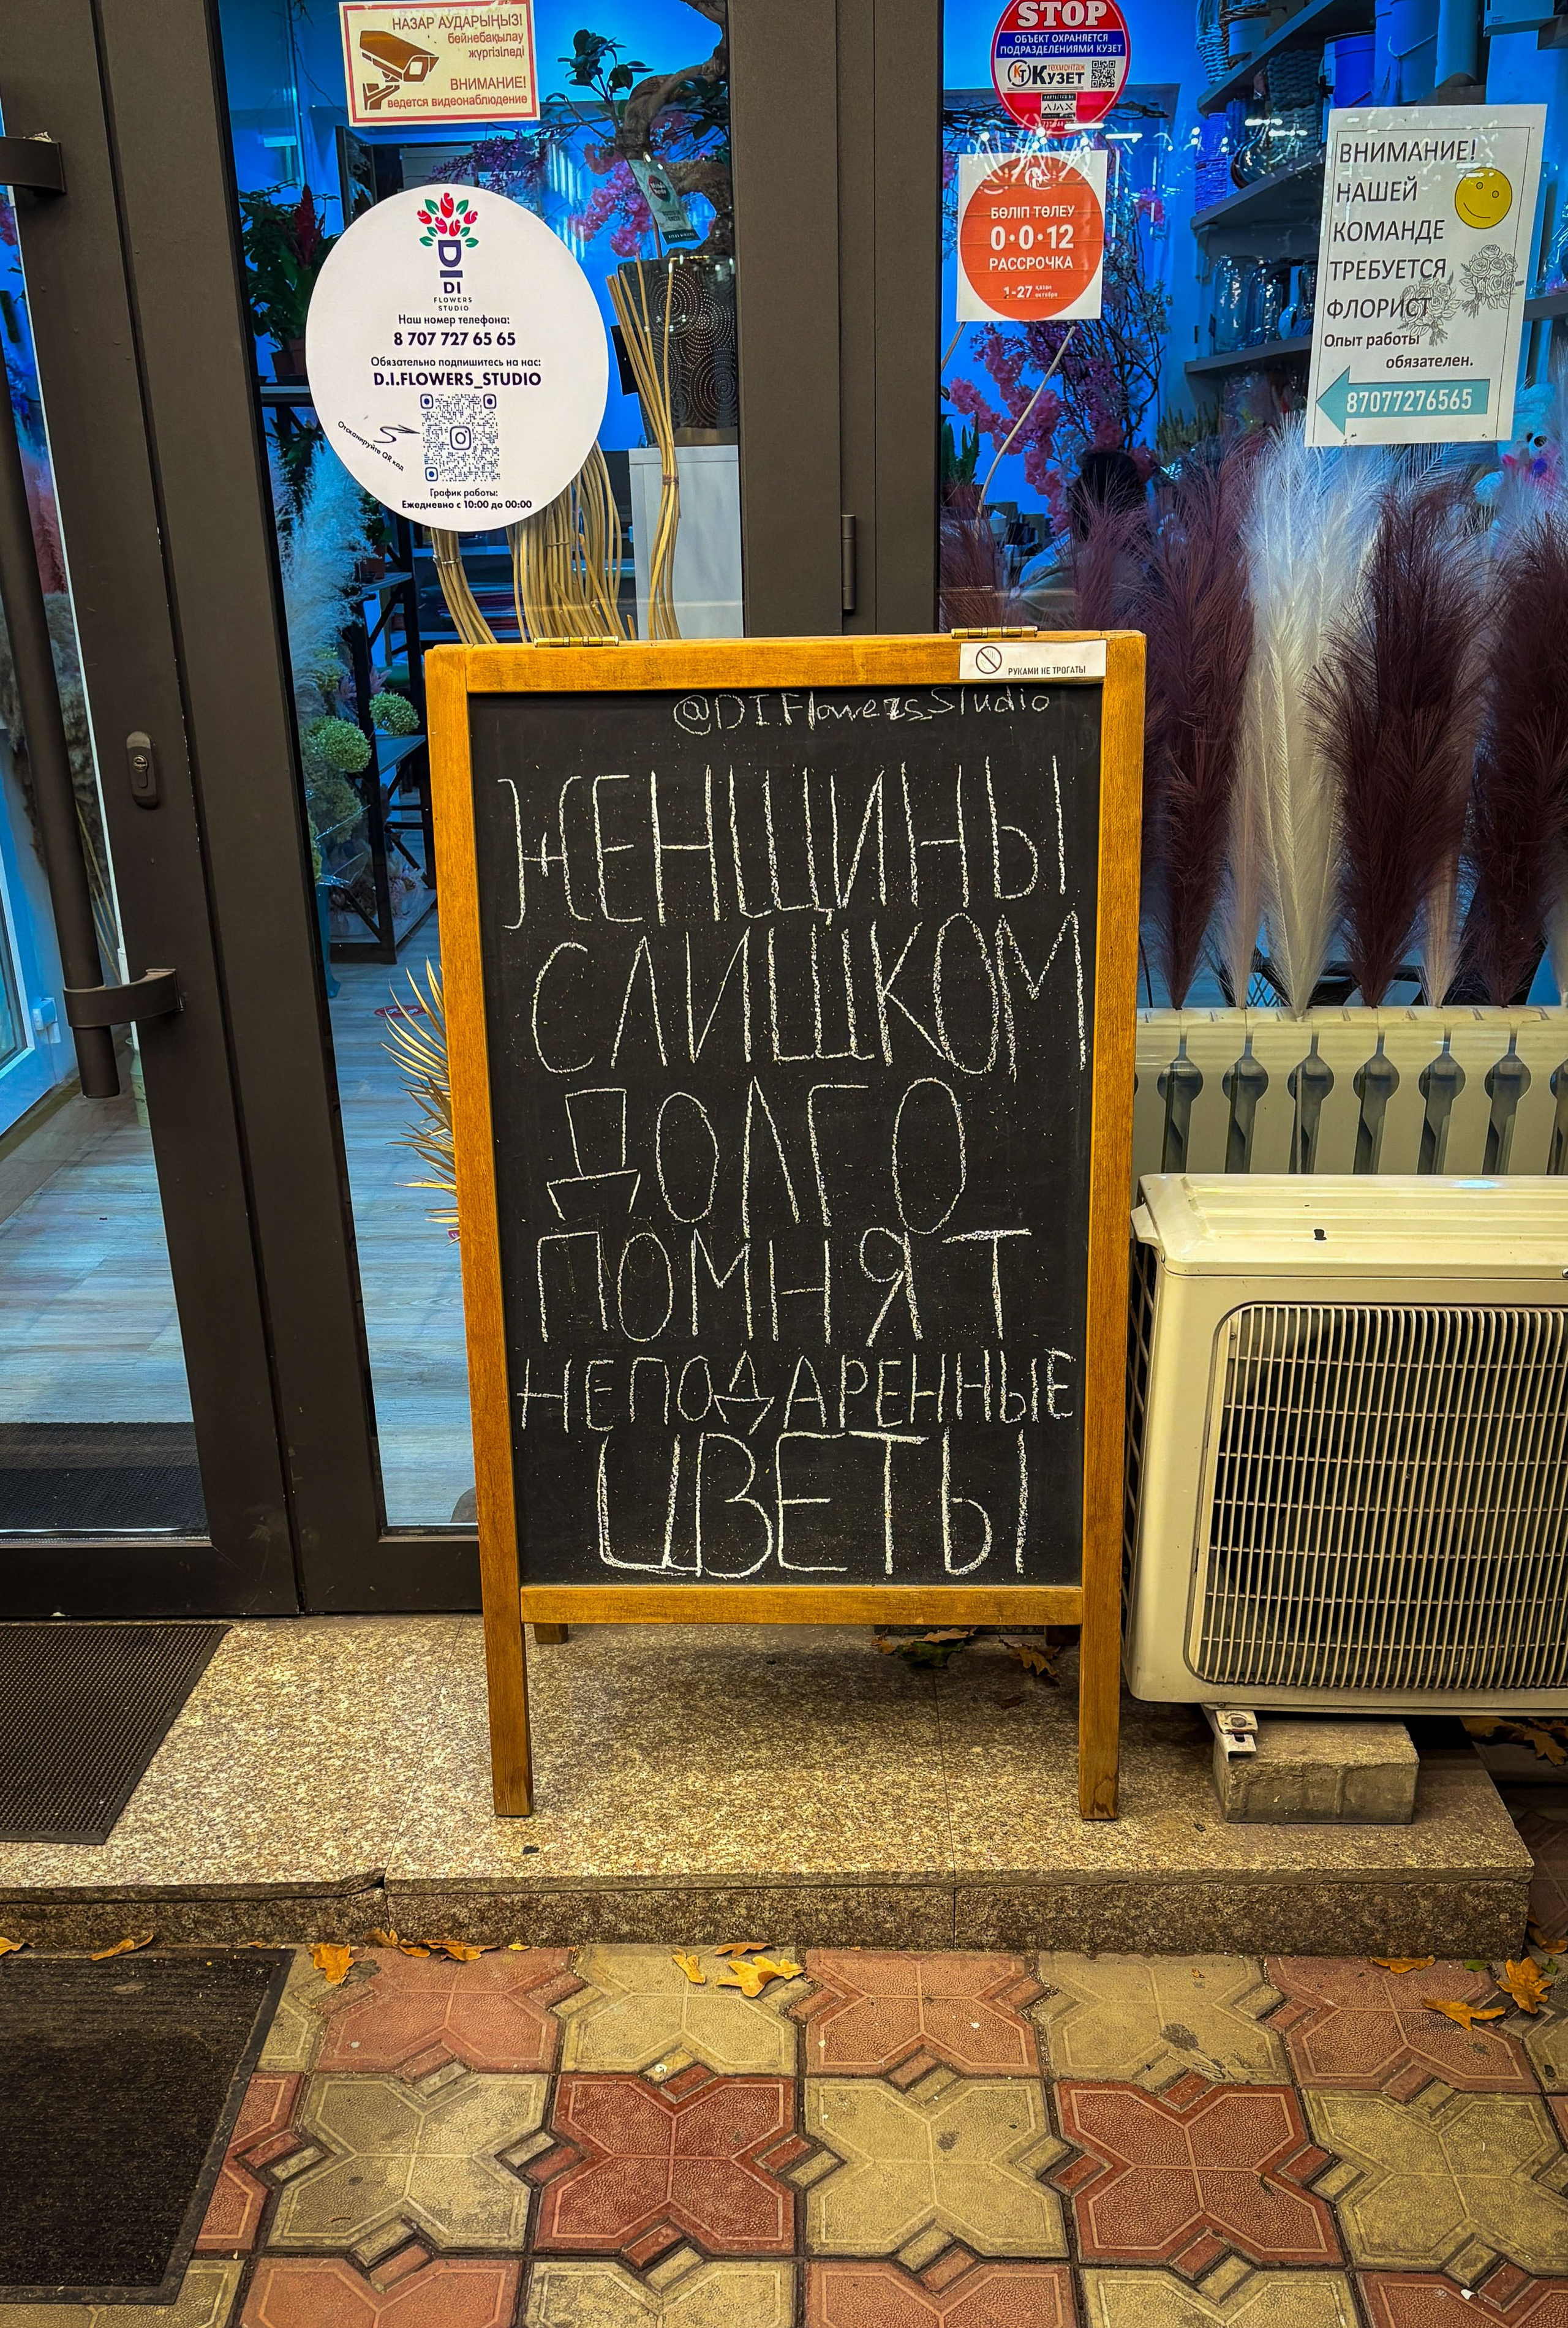 НАЗАР АУДАРЫҢЫЗ!
бейнебақылау
жүргізіледі
ВНИМАНИЕ!
ведется видеонаблюдение
STOP
ОБЪЕКТ ОХРАНЯЕТСЯ
ПОДРАЗДЕЛЕНИЯМИ КУЗЕТ
КУЗЕТ
AJAX
БӨЛІП ТӨЛЕУ
0·0·12
РАССРОЧКА
1-27 қазан
октября
ВНИМАНИЕ!
НАШЕЙ
КОМАНДЕ
ТРЕБУЕТСЯ
ФЛОРИСТ
Опыт работы
обязателен.
87077276565
DI
DI
FLOWERS
STUDIO
Наш номер телефона:
8 707 727 65 65
Обязательно подпишитесь на нас:
D.I.FLOWERS_STUDIO
Отсканируйте QR код
График работы:
Ежедневно с 10:00 до 00:00
РУКАМИ НЕ ТРОГАТЬ!
@D.I.Flowers_Studio
ЖЕНЩИНЫ
СЛИШКОМ
ДОЛГО
ПОМНЯТ
НЕПОДАРЕННЫЕ
ЦВЕТЫ